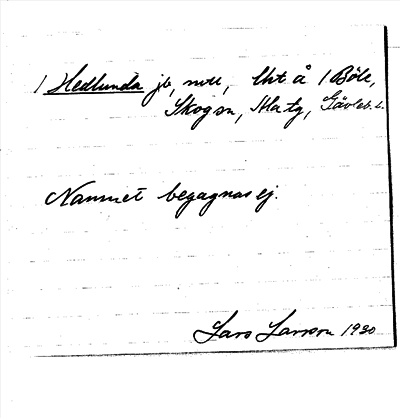 1 Hedlunda jb, mtl, lht å 1 Böle,
Skogsn, Ha tg, Gävleb. l.
Namnet begagnas ej.
Lars Larsson 1930